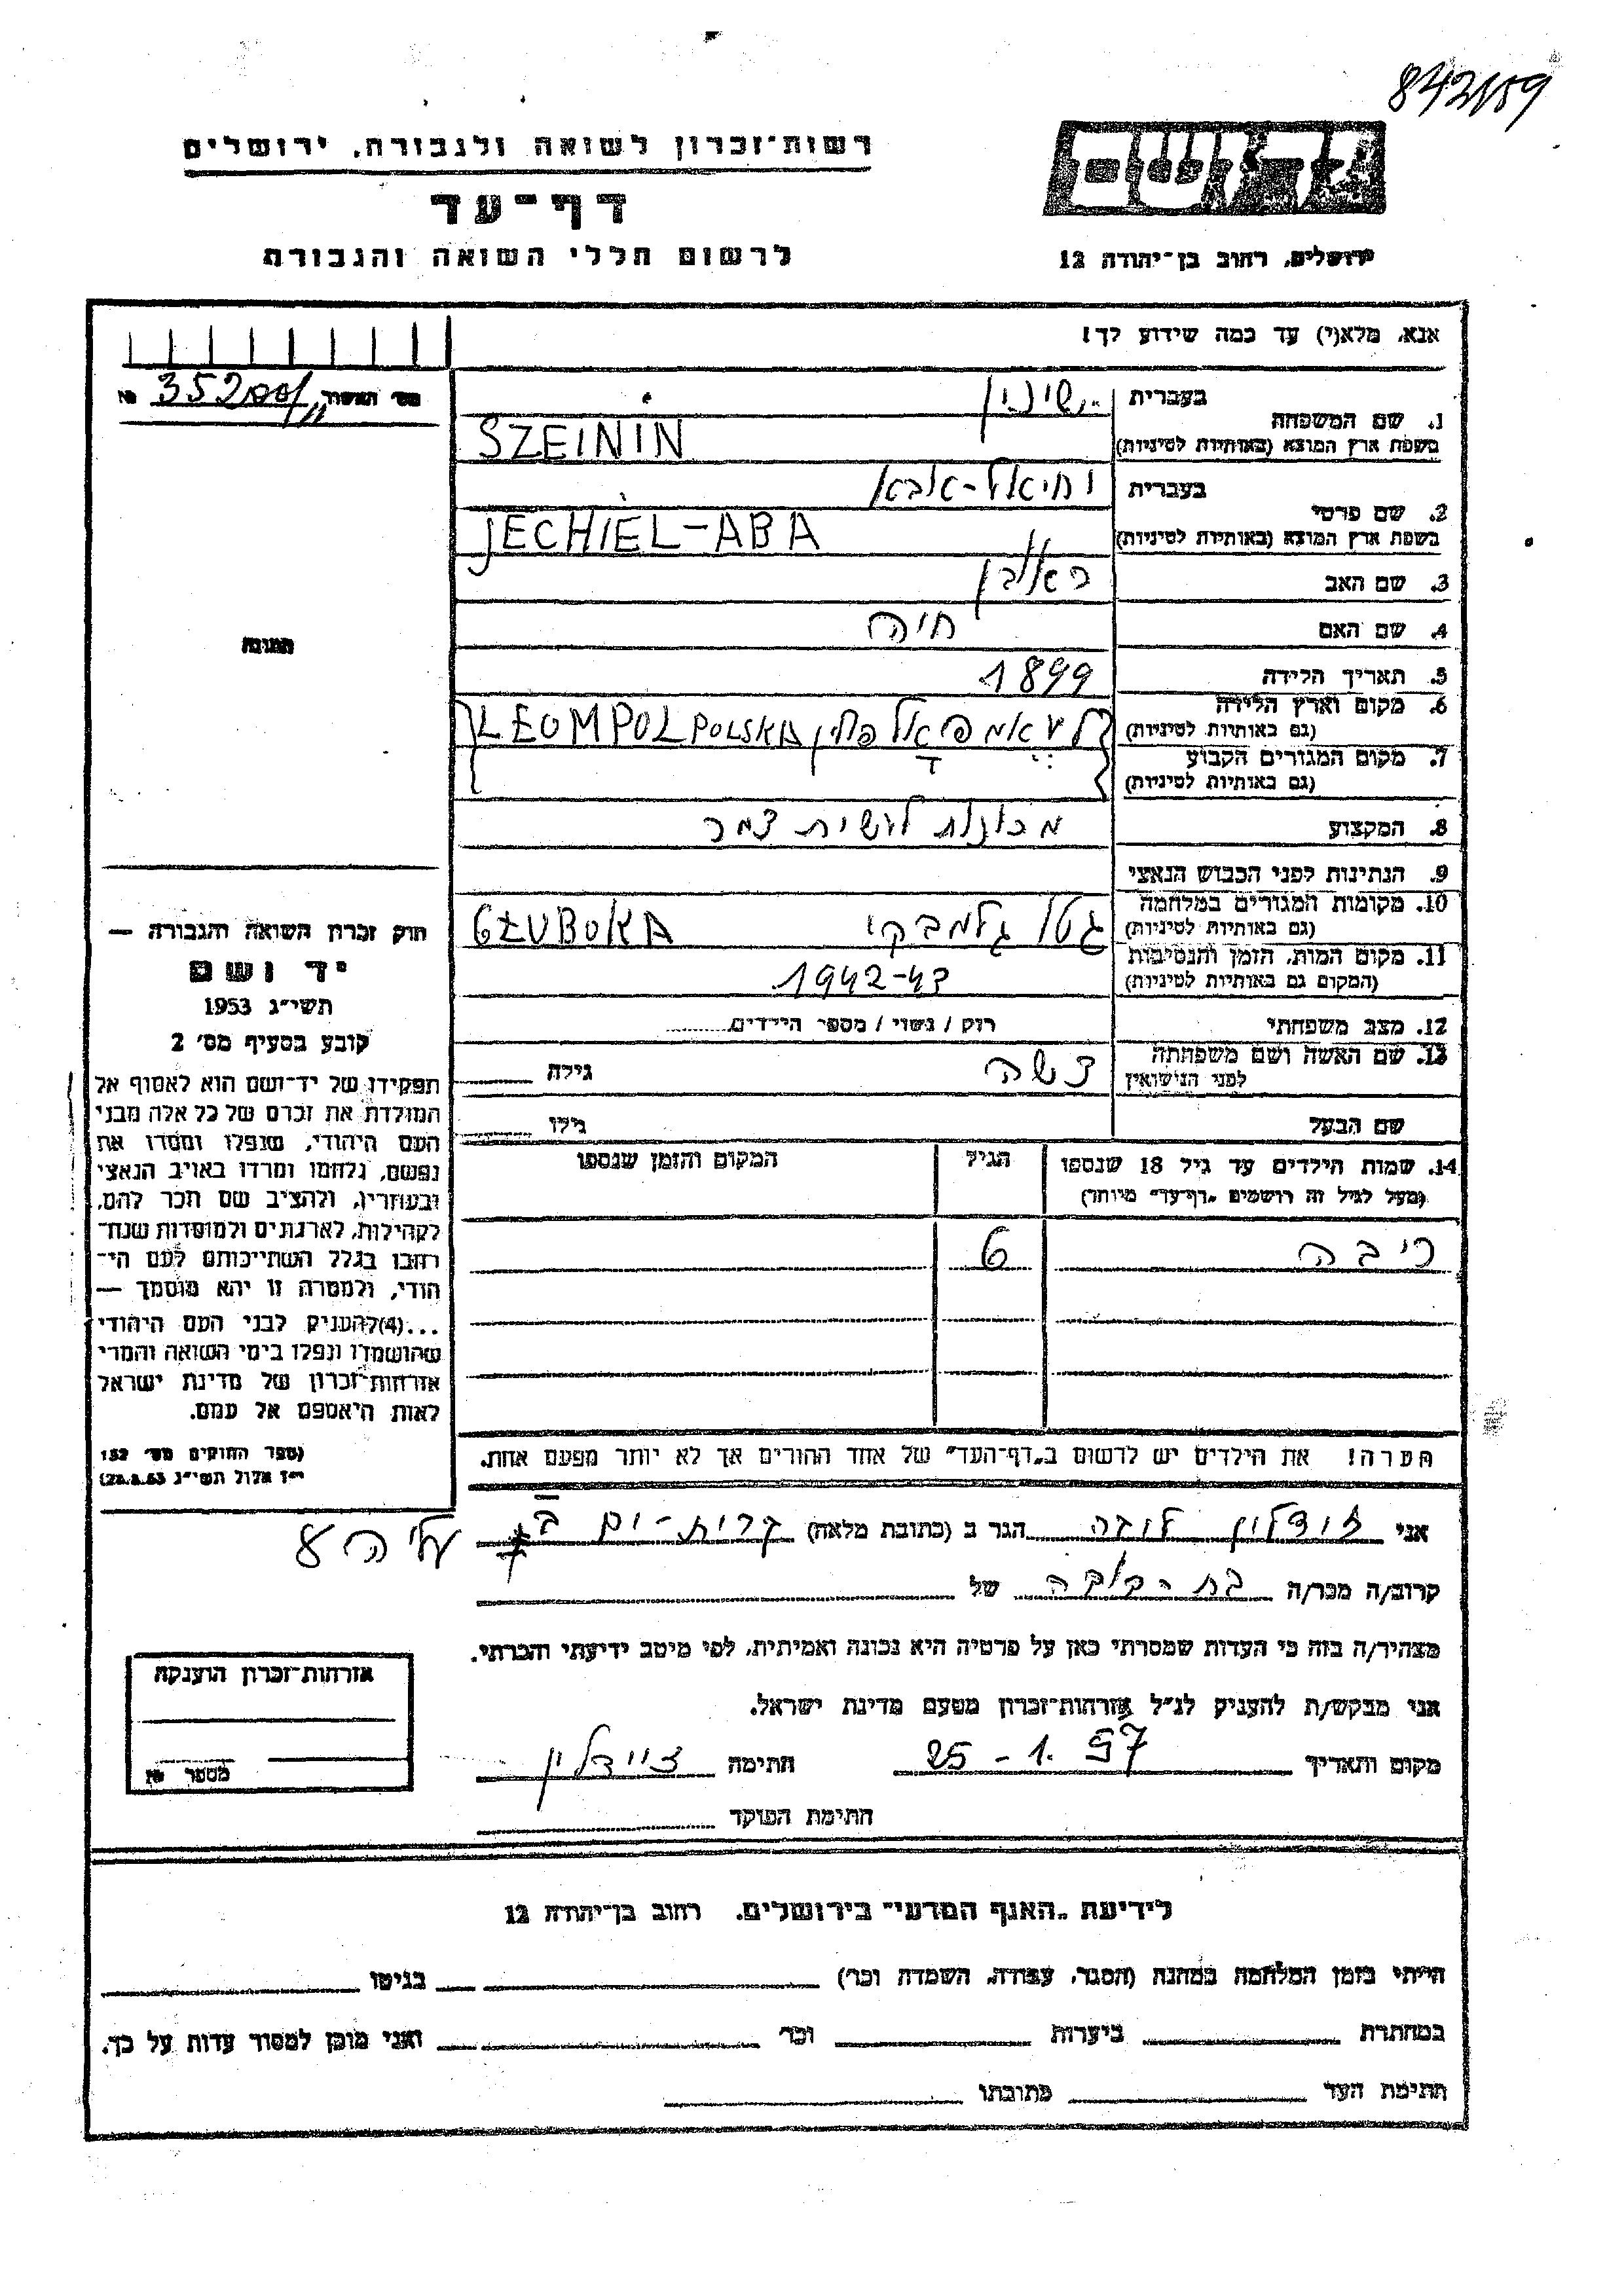 842159
רשות־זכרון לשואה ולגבורה, ירושלים
דף־עד
לרשום חללי השואה והגבורה
ירושלים, רחוב בן־יהודה 12
אנא, מלא(י) עד כמה שידוע לך!
1. שם המשפחה
בעברית שינין
בשפת ארץ המוצא (באותיות לטיניות) SZEININ
2. שם פרטי
בעברית יחיאל-אבא
בשפת ארץ המוצא (באותיות לטיניות) JECHIEL-ABA
3. שם האב ראובן
4. שם האם חיה
5. תאריך הלידה 1899
6. מקום וארץ הלידה
(גם באותיות לטיניות) LEOMPOL POLSKA
7. מקום המגורים הקבוע
(גם באותיות לטיניות)
8. המקצוע צמר
9. הנתינות לפני הכבוש הנאצי
10. מקומות המגורים במלחמה
(גם באותיות לטיניות) GŁUBOKA
11. מקום המות, הזמן והנסיבות
(המקום גם באותיות לטיניות) 1942-43
12. מצב משפחתי רוק / נשוי / מספר הילדים
13. שם האשה ושם משפחתה
לפני הנישואין גילה
שם הבעל גילו
14. שמות הילדים עד גיל 18 שנספו הגיל המקום והזמן שנספו
(מעל לגיל זה רושמים „דף־עד” מיוחד)
ריבה 6
הערה! את הילדים יש לרשום ב„דף־העד” של אחד ההורים אך לא יותר מפעם אחת.
מס' האשור № 35200
תמונה
חוק זכרון השואה והגבורה —
יד ושם
תשי״ג 1953
קובע בסעיף מס' 2
תפקידו של יד־ושם הוא לאסוף אל
המולדת את זכרם של כל אלה מבני
העם היהודי, שנפלו ומסרו את
נפשם, נלחמו ומרדו באויב הנאצי
ובעוזריו, ולהציב שם וזכר להם,
לקהילות, לארגונים ולמוסדות שנח־
רבו בגלל השתייכותם לעם הי־
הודי, ולמטרה זו יהא מוסמך —
...(4) להעניק לבני העם היהודי
שהושמדו ונפלו בימי השואה והמרי
אזרחות־זכרון של מדינת ישראל
לאות היאספם אל עמם.
(ספר החוקים מס' 132
י״ז אלול תשי״ג 28.8.53)
אני הגר ב (כתובת מלאה) קרית-ים ב
קרוב/ה מכר/ה של
מצהיר/ה בזה כי העדות שמסרתי כאן על פרטיה היא נכונה ואמיתית, לפי מיטב ידיעתי והכרתי.
אני מבקש/ת להעניק לנ״ל אזרחות־זכרון מטעם מדינת ישראל.
מקום ותאריך 25-1.57 חתימה
חתימת הפוקד
אזרחות־זכרון הוענקה
מספר №
לידיעת „האגף המדעי” בירושלים, רחוב בן־יהודה 12
הייתי בזמן המלחמה במחנה (הסגר, עבודה, השמדה וכר') בגיטו
במחתרת ביערות וכר' ואני מוכן למסור עדות על כך.
חתימת העד כתובתו